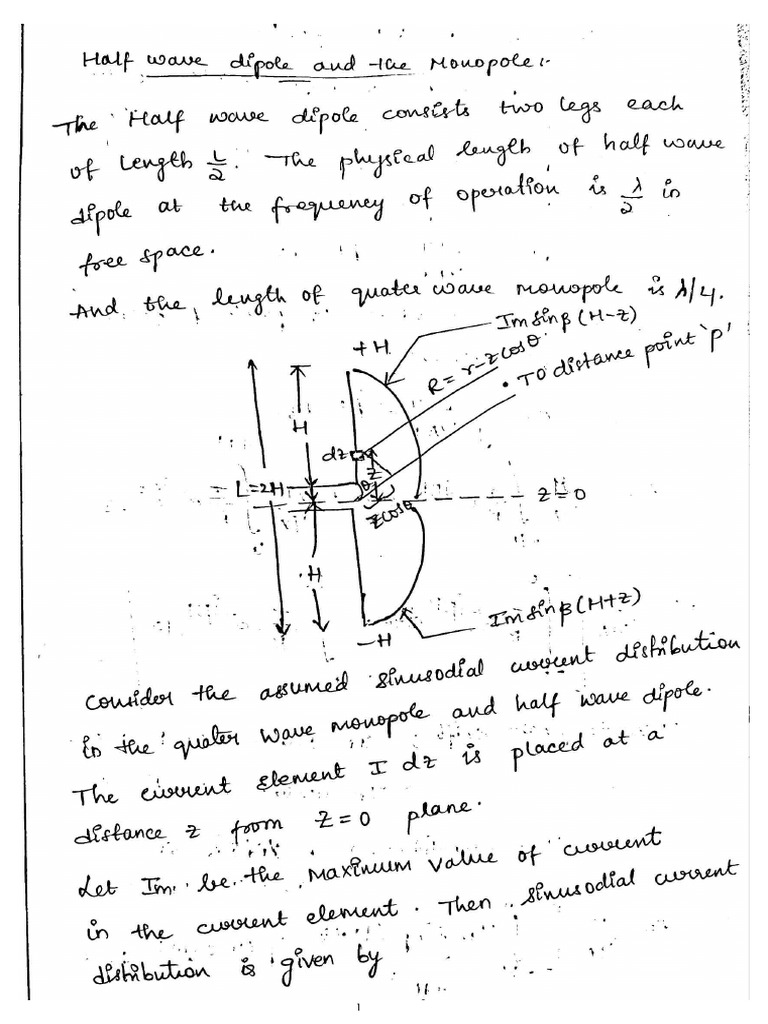 Half wave dipole and the Monopole:-
The Half wave dipole consists two legs each
of Length L/2. The physical length of half wave
dipole at the frequency of operation is λ/2 in
free space.
And the length of quater wave monopole is λ/4.
Im sin β (H-z)
+H
R = r-zcosθ
• To distance point 'p'
H
dz
z
θ
L=2H
z=0
zcosθ
H
Im sin β (H+z)
-H
Consider the assumed sinusodial current distribution
in the quater wave monopole and half wave dipole.
The current element I dz is placed at a
distance z from z=0 plane.
Let Im be the maximum value of current
in the current element. Then sinusodial current
distribution is given by
1